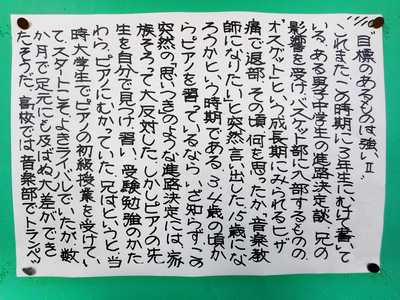 "目標のあるものは強い Ⅱ"
これまたこの時期に3年生にむけ書いて
いる、ある男子中学生の進路決定談。兄の
影響を受けバスケット部に入部するものの、
オスグットという成長期にみられるヒザ
痛で退部。その頃何を思ったか「音楽教
師になりたい」と突然言い出した。15歳にな
ろうかという時期である。3、4歳の頃か
らピアノを習っているなら いざ知らず、この
突然の「思いつき」のような進路決定には、家
族そろって大反対した。しかしピアノの先
生を自分で見つけ、習い、受験勉強のかた
わら、ピアノにむかっていた。兄はというと、当
時大学生でピアノの初級授業を受けてい
て、スタートこそよきライバルでいたが、数
か月で足元にも及ばぬ大差ができ
たそうだ。高校では音楽部でトランペッ